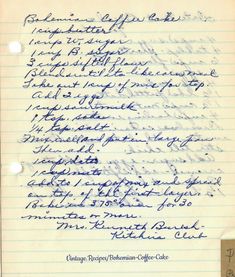 Bohemian Coffee Cake
1 cup butter
1 cup W. sugar
1 cup B. sugar
3 cups sifted flour
Blend until like corn meal
Take out 1 cup of mix for top
Add 2 eggs
1 cup sour milk
1 tsp. soda
1/4 tsp salt
Mix well and put in large pan
Then add
1 cup dates
1 cup nuts
Add to 1 cup of mix and spread
on top of the first layer
Bake in 375° oven for 30
minutes or more.
Mrs. Kenneth
Kitchie Club
Vintage.Recipes/Bohemian-Coffee-Cake